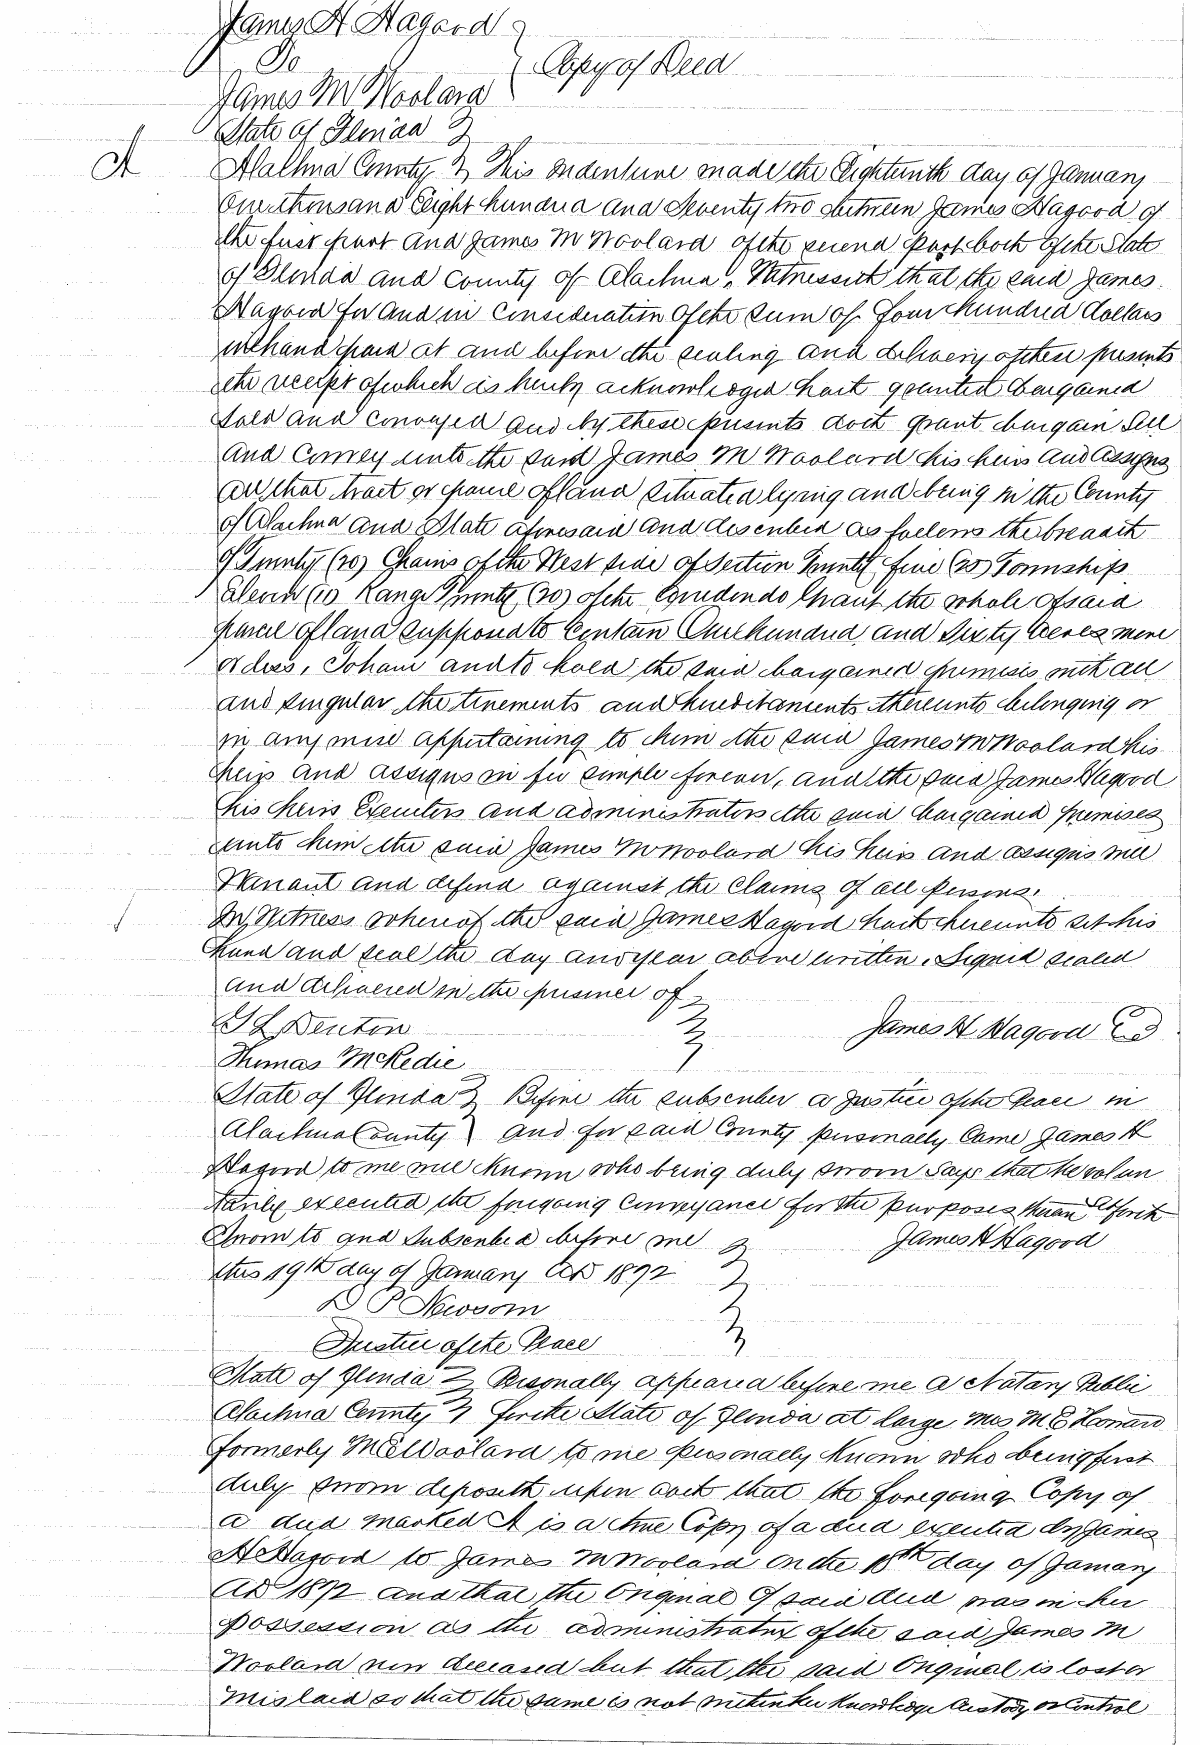 James H Hagood
To
Copy of Deed
James M Woolard
State of Florida
A
Alachua County This indenture made the Eighteenth day of January
One thousand Eight hundred and Seventy two between James Hagood of
the first part and James M Woolard of the second part both of the State
of Florida and County of Alachua, Witnesseth that the said James
Hagood for and in consideration of the sum of four hundred dollars
in hand paid at and before the sealing and delivery of these presents
the receipt of which is hereby acknowledged hath granted bargained
sold and conveyed and by these presents doth grant bargain sell
and convey unto the said James M Woolard his heirs and assigns
all that tract or parcel of land situated lying and being in the County
of Alachua and State aforesaid and described as follows the breadth
of Twenty (20) Chains of the West side of Section Twenty five (25) Township
Eleven (11) Range Twenty (20) of the Grant the whole of said
parcel of land supposed to contain One hundred and Sixty acres more
or less, To have and to hold the said bargained premises with all
and singular the tenements and hereditaments thereunto belonging or
in any wise appertaining to him the said James M Woolard his
heirs and assigns in fee simple forever, and the said James Hagood
his heirs Executers and administrators the said bargained premises
unto him the said James M Woolard his heirs and assigns will
Warrant and defend against the claims of all persons.
In Witness whereof the said James Hagood hath hereunto set his
hand and seal the day and year above written. Signed sealed
and delivered in the presence of
James H Hagood
Denton
Thomas McRedie
State of Florida Before the subscriber a Justice of the Peace in
Alachua County and for said County personally came James H
Hagood to me well known who being duly sworn says that he volun
tarily executed the foregoing conveyance for the purposes therein set forth
Sworn to and Subscribed before me James H Hagood
this 19th day of January AD 1892
D P Newsom
Justice of the Peace
State of Florida Personally appeared before me a Notary Public
Alachua County for the State of Florida at large Mrs M E
formerly M E Woolard to me personally known who being first
duly sworn deposeth upon oath that the foregoing Copy of
a deed marked A is a true Copy of a deed executed by James
H Hagood to James M Woolard on the 18th day of January
AD 1872 and that the Original of said deed was in her
possession as the administratrix of the said James M
Woolard now deceased but that the said Original is lost or
mislaid so that the same is not within her knowledge custody or control